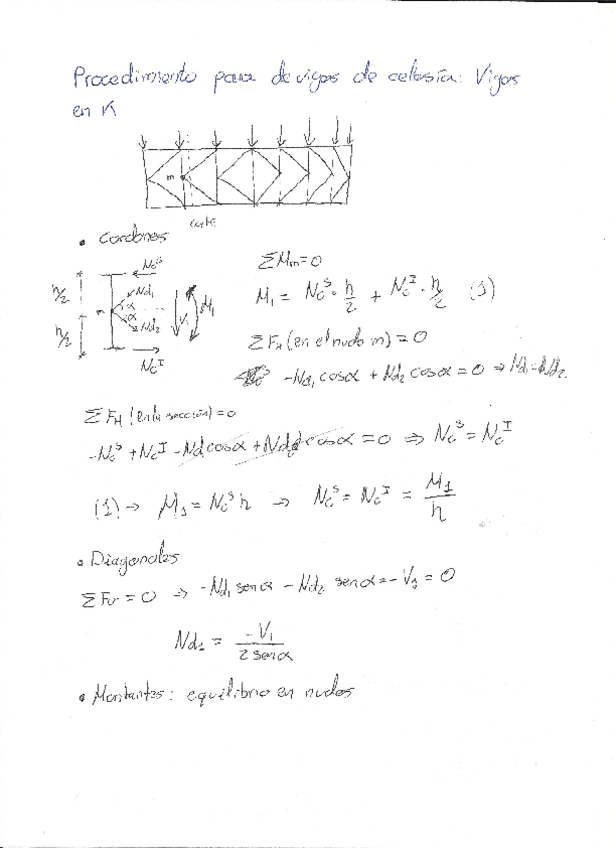 Procedimiento para de vigas de celosía: Vigas
en K
m
corte
• Cordones
Nc^S
h/2
Nd₁
α
m
α
Nd₂
V
M₁
h/2
Nc^I
ΣMm=0
M₁ = Nc^S · h/2 + Nc^I · h/2 (1)
ΣF_H (en el nudo m) = 0
-Nd₁ cosα + Nd₂ cosα = 0 ⇒ Nd₁=Nd₂.
ΣF_H (en la sección)=0
-Nc^S + Nc^I - Nd cosα + Nd₂ cosα = 0 ⇒ Nc^S = Nc^I
(1) → M₁ = Nc^S h → Nc^S = Nc^I = M₁/h
• Diagonales
ΣFv = 0 → -Nd₁ senα - Nd₂ senα = - V₁ = 0
Nd₁ = -V₁/2 senα
• Montantes: equilibrio en nudos